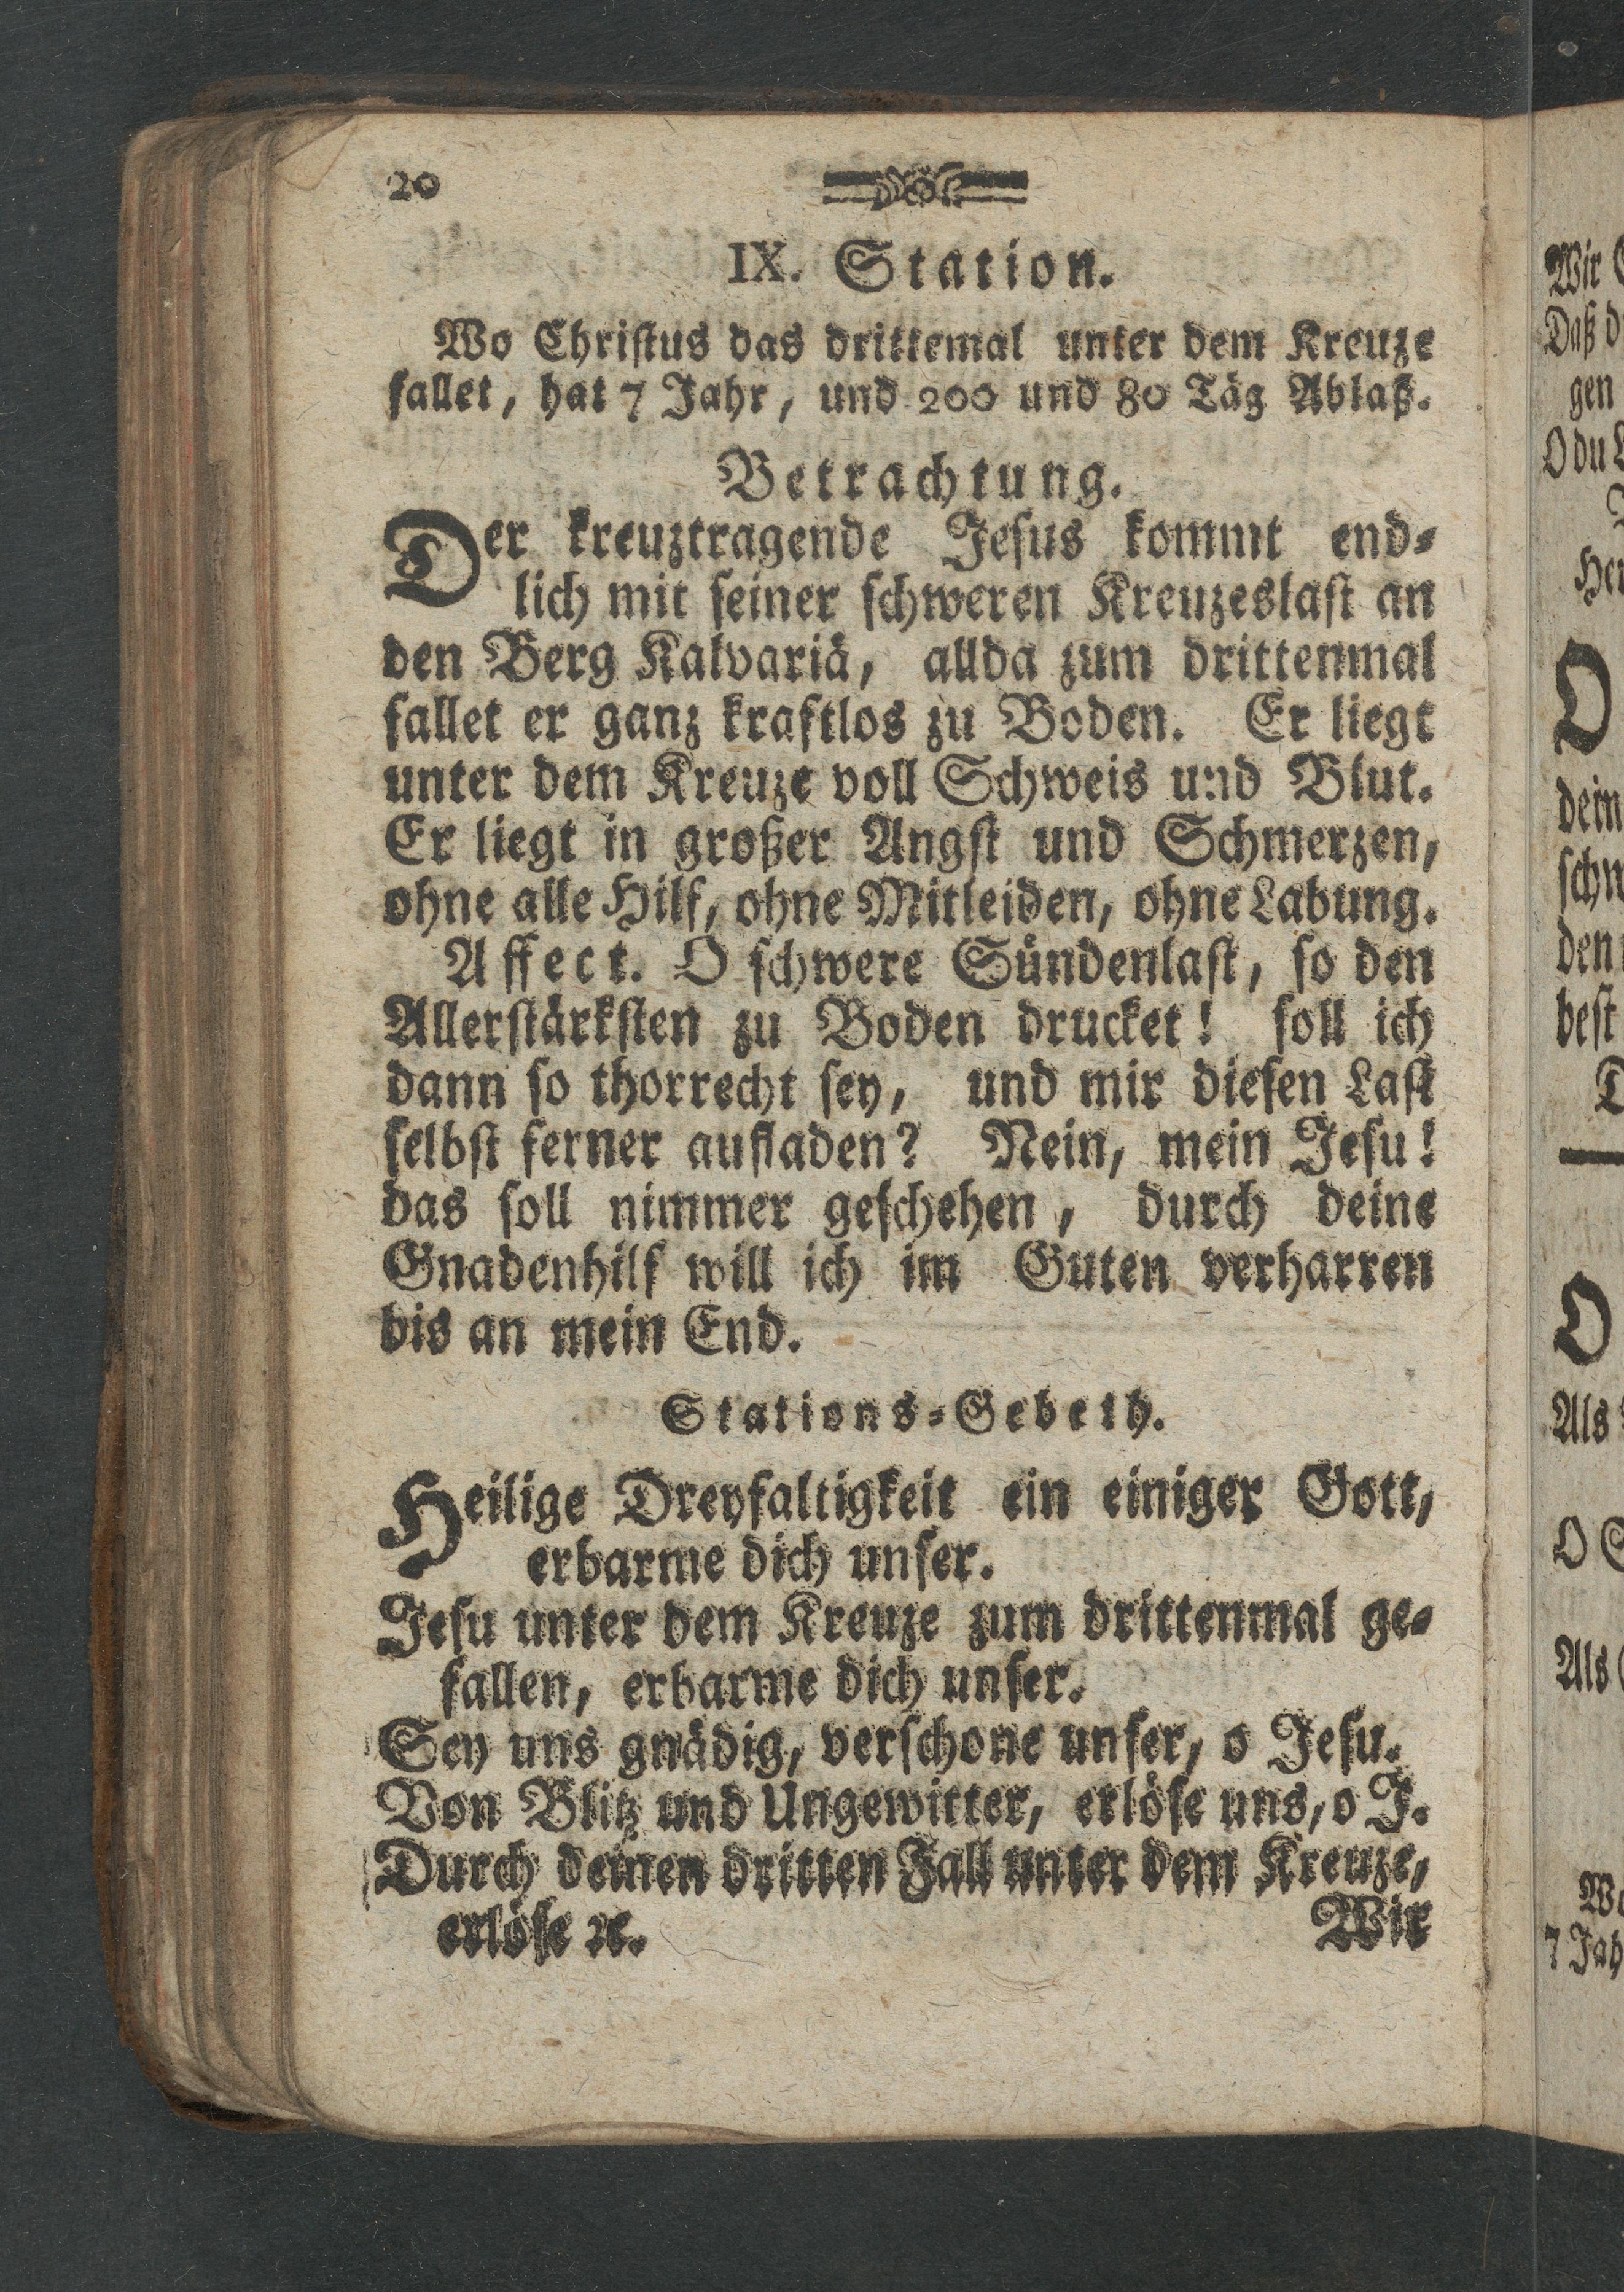 20
IX. Station.
Wo Christus das drittemal unter dem Kreuze
fallet, hat 7 Jahr, und 200 und 80 Täg Ablaß.
Betrachtung.
Der kreuztragende Jesus kommt end-
lich mit seiner schweren Kreuzeslast an
den Berg Kalvariä, allda zum drittenmal
fallet er ganz kraftlos zu Boden. Er liegt
unter dem Kreuze voll Schweis und Blut.
Er liegt in großer Angst und Schmerzen,
ohne alle Hilf, ohne Mitleiden, ohne Labung.
Affect. O schwere Sündenlast, so den
Allerstärksten zu Boden drucket! soll ich
dann so thorrecht sey, und mir diesen Last
selbst ferner aufladen? Nein, mein Jesu!
das soll nimmer geschehen, durch deine
Gnadenhilf will ich im Guten verharren
bis an mein End.
Stations-Gebeth.
Heilige Dreyfaltigkeit ein einiger Gott,
erbarme dich unser.
Jesu unter dem Kreuze zum drittenmal ge-
fallen, erbarme dich unser.
Sey uns gnädig, verschone unser, o Jesu.
Von Blitz und Ungewitter, erlöse uns, o J.
Durch deinen dritten Fall unter dem Kreuze,
erlöse ꝛc. Wir
Wir
Daß
gen
O du
O
dein
den
best
O
Als
O
Als
7 Jah